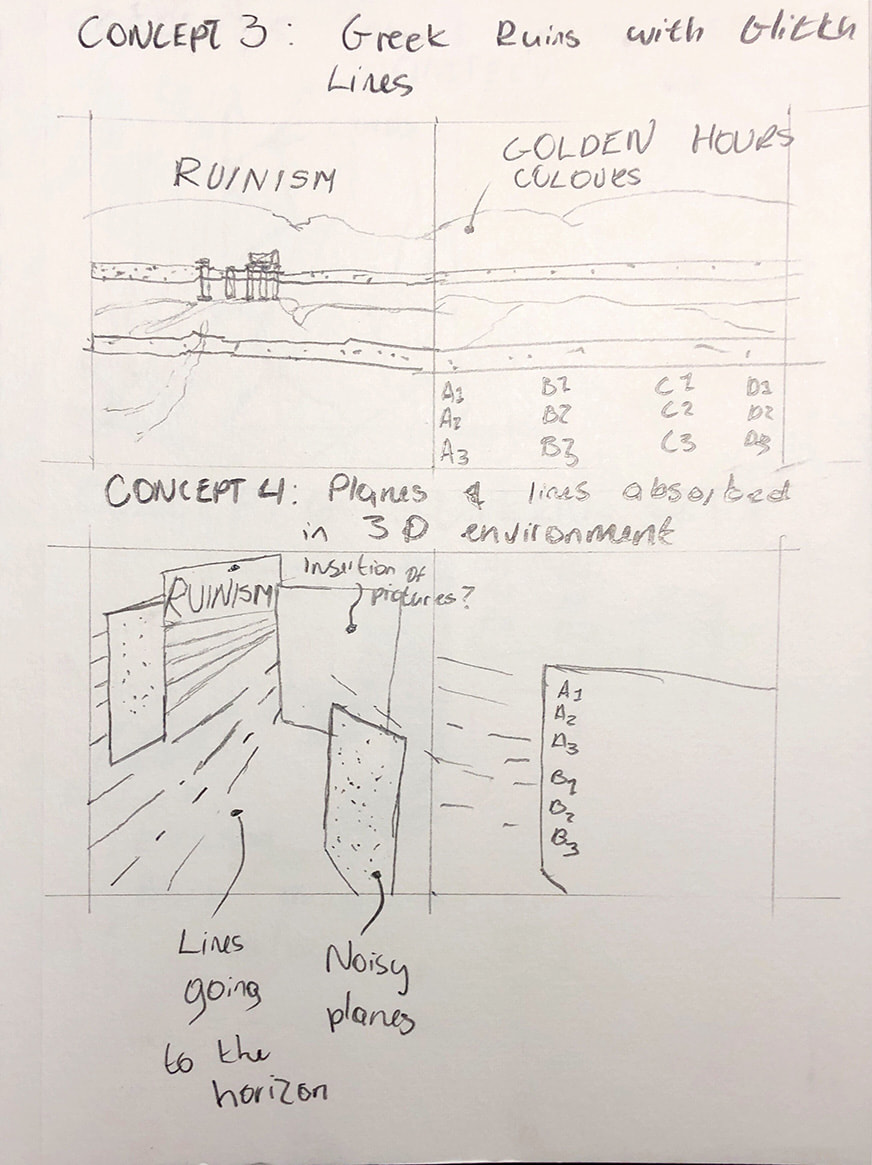 CONCEPT 3: Greek Ruins with Glitch
Lines
RUINISM
GOLDEN HOURS
COLOURS
A1 B1 C1 D1
A2 B2 C2 D2
A3 B3 C3 D3
CONCEPT 4: Planes & lines absorbed
in 3D environment
Insertion of
pictures?
RUINISM
A1
A2
A3
B1
B2
B3
Lines
going
to the
horizon
Noisy
planes